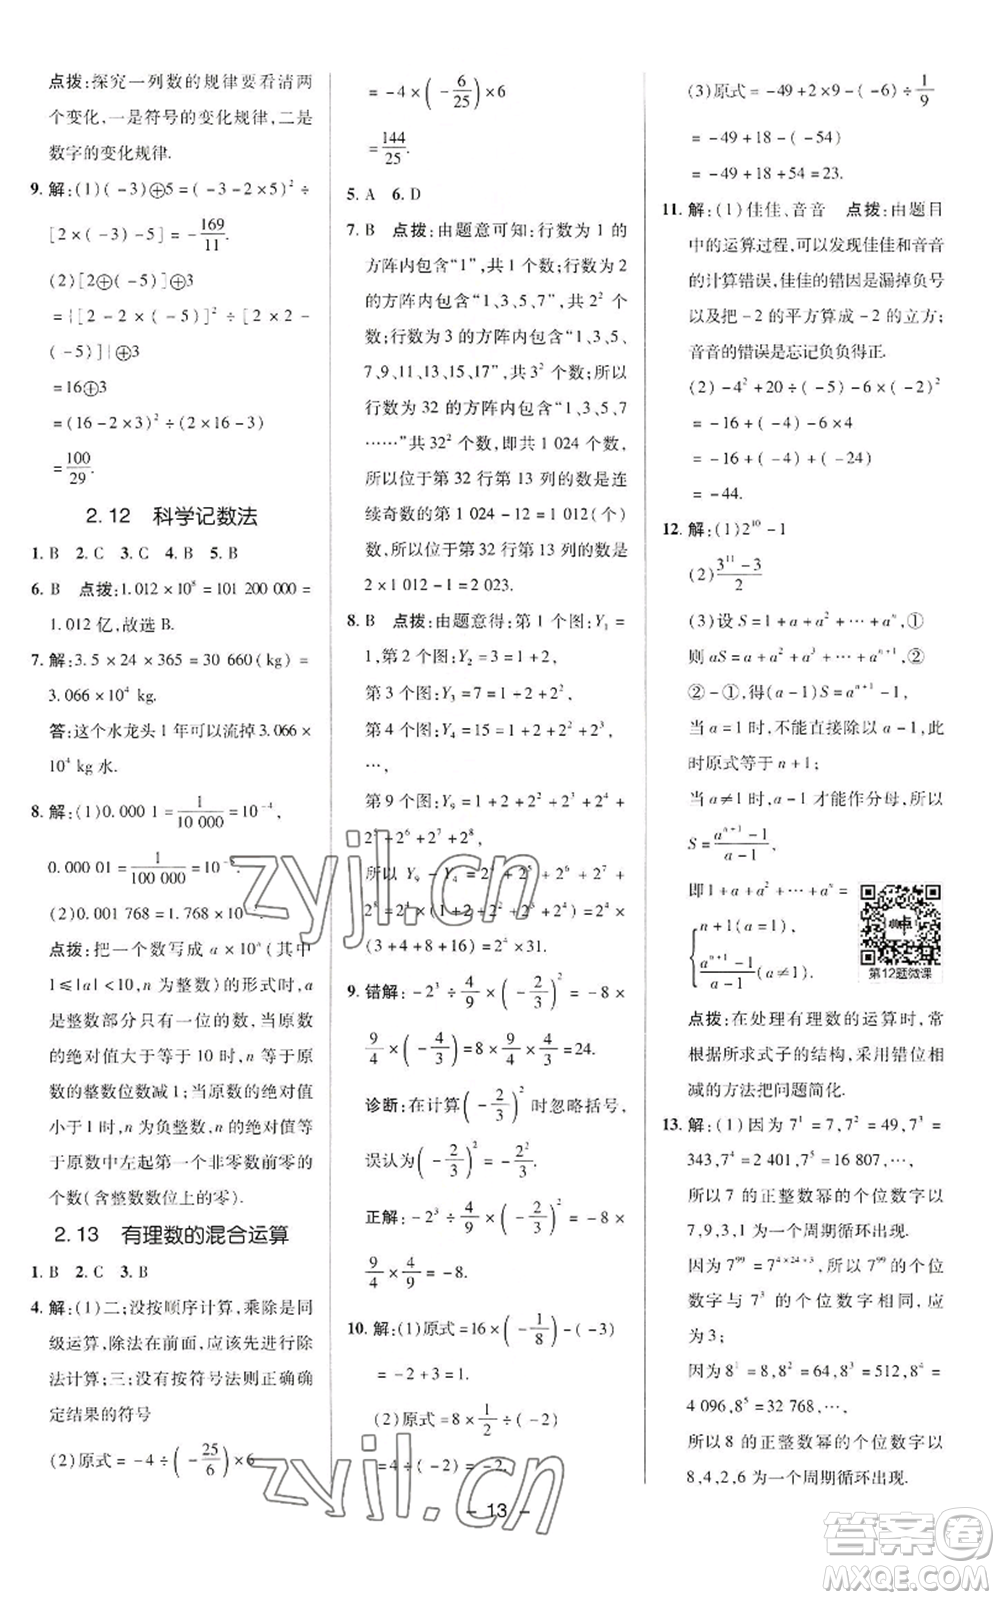 点拨:探究一列数的规律要看清两
个变化,一是符号的变化规律,二是
数字的变化规律.
9. 解:(1)(-3)⊕5=(-3-2×5)²÷
[2×(-3)-5]=-169/11.
(2)[2⊕(-5)]⊕3
={[2-2×(-5)]²÷[2×2-
(-5)]}⊕3
=16⊕3
=(16-2×3)²÷(2×16-3)
=100/29.
2.12 科学记数法
1. B 2. C 3. C 4. B 5. B
6. B 点拨:1.012×10⁸=101 200 000=
1.012亿,故选 B.
7. 解:3.5×24×365=30 660(kg)=
3.066×10⁴ kg.
答:这个水龙头 1 年可以流掉 3.066×
10⁴ kg 水.
8. 解:(1)0.000 1=1/10 000=10⁻⁴,
0.000 01=1/100 000=10⁻⁵.
(2)0.001 768=1.768×10⁻³.
点拨:把一个数写成 a×10ⁿ(其中
1≤|a|<10,n 为整数)的形式时,a
是整数部分只有一位的数,当原数
的绝对值大于等于 10 时,n 等于原
数的整数位数减 1;当原数的绝对值
小于 1 时,n 为负整数,n 的绝对值等
于原数中左起第一个非零数前零的
个数(含整数数位上的零).
2.13 有理数的混合运算
1. B 2. C 3. B
4. 解:(1)二;没按顺序计算,乘除是同
级运算,除法在前面,应该先进行除
法计算;三;没有按符号法则正确确
定结果的符号
(2)原式=-4÷(-25/6)×6
=-4×(-6/25)×6
=144/25.
5. A 6. D
7. B 点拨:由题意可知:行数为 1 的
方阵内包含“1”,共 1 个数;行数为 2
的方阵内包含“1,3,5,7”,共 2² 个
数;行数为 3 的方阵内包含“1,3,5,
7,9,11,13,15,17”,共 3² 个数;所以
行数为 32 的方阵内包含“1,3,5,7
……”共 32² 个数,即共 1 024 个数,
所以位于第 32 行第 13 列的数是连
续奇数的第 1 024-12=1 012(个)
数,所以位于第 32 行第 13 列的数是
2×1 012-1=2 023.
8. B 点拨:由题意得:第 1 个图:Y₁=
1,第 2 个图:Y₂=3=1+2,
第 3 个图:Y₃=7=1+2+2²,
第 4 个图:Y₄=15=1+2+2²+2³,
…,
第 9 个图:Y₉=1+2+2²+2³+2⁴+
2⁵+2⁶+2⁷+2⁸,
所以 Y₉-Y₄=2⁴+2⁵+2⁶+2⁷+
2⁸=2⁴×(1+2+2²+2³+2⁴)=2⁴×
(3+4+8+16)=2⁴×31.
9. 错解:-2³÷4/9×(-2/3)²=-8×
9/4×(-4/3)=8×9/4×4/3=24.
诊断:在计算(-2/3)²时忽略括号,
误认为(-2/3)²=-2²/3.
正解:-2³÷4/9×(-2/3)²=-8×
9/4×4/9=-8.
10. 解:(1)原式=16×(-1/8)-(-3)
=-2+3=1.
(2)原式=8×1/2÷(-2)
=4÷(-2)=-2.
(3)原式=-49+2×9-(-6)÷1/9
=-49+18-(-54)
=-49+18+54=23.
11. 解:(1)佳佳、音音 点拨:由题目
中的运算过程,可以发现佳佳和音音
的计算错误,佳佳的错因是漏掉负号
以及把-2的平方算成-2的立方;
音音的错误是忘记负负得正.
(2)-4²+20÷(-5)-6×(-2)²
=-16+(-4)-6×4
=-16+(-4)+(-24)
=-44.
12. 解:(1)2¹⁰-1
(2)(3¹¹-3)/2
(3)设 S=1+a+a²+…+aⁿ,①
则 aS=a+a²+…+aⁿ⁺¹,②
②-①,得(a-1)S=aⁿ⁺¹-1,
当 a=1 时,不能直接除以 a-1,此
时原式等于 n+1;
当 a≠1 时,a-1 才能作分母,所以
S=(aⁿ⁺¹-1)/(a-1),
即 1+a+a²+…+aⁿ=
{n+1(a=1),
(aⁿ⁺¹-1)/(a-1)(a≠1).
第12题微课
点拨:在处理有理数的运算时,常
根据所求式子的结构,采用错位相
减的方法把问题简化.
13. 解:(1)因为 7¹=7,7²=49,7³=
343,7⁴=2 401,7⁵=16 807,…,
所以 7 的正整数幂的个位数字以
7,9,3,1 为一个周期循环出现.
因为 7⁹⁹=7⁴ˣ²⁴⁺³,所以 7⁹⁹的个位
数字与 7³ 的个位数字相同,应
为 3;
因为 8¹=8,8²=64,8³=512,8⁴=
4 096,8⁵=32 768,…,
所以 8 的正整数幂的个位数字以
8,4,2,6 为一个周期循环出现.
- 13 -
zyjl.cn
zyjl.cn
答案卷
MXQE.COM